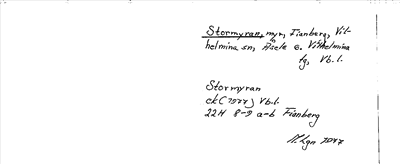 Stormyran, myr, Fianberg, Vil-
helmina sn, Åsele o. Vilhelmina
tg, Vb.l.
Stormyran
ek (1977) Vb.l.
22H 8-9 a-b Fianberg
1977